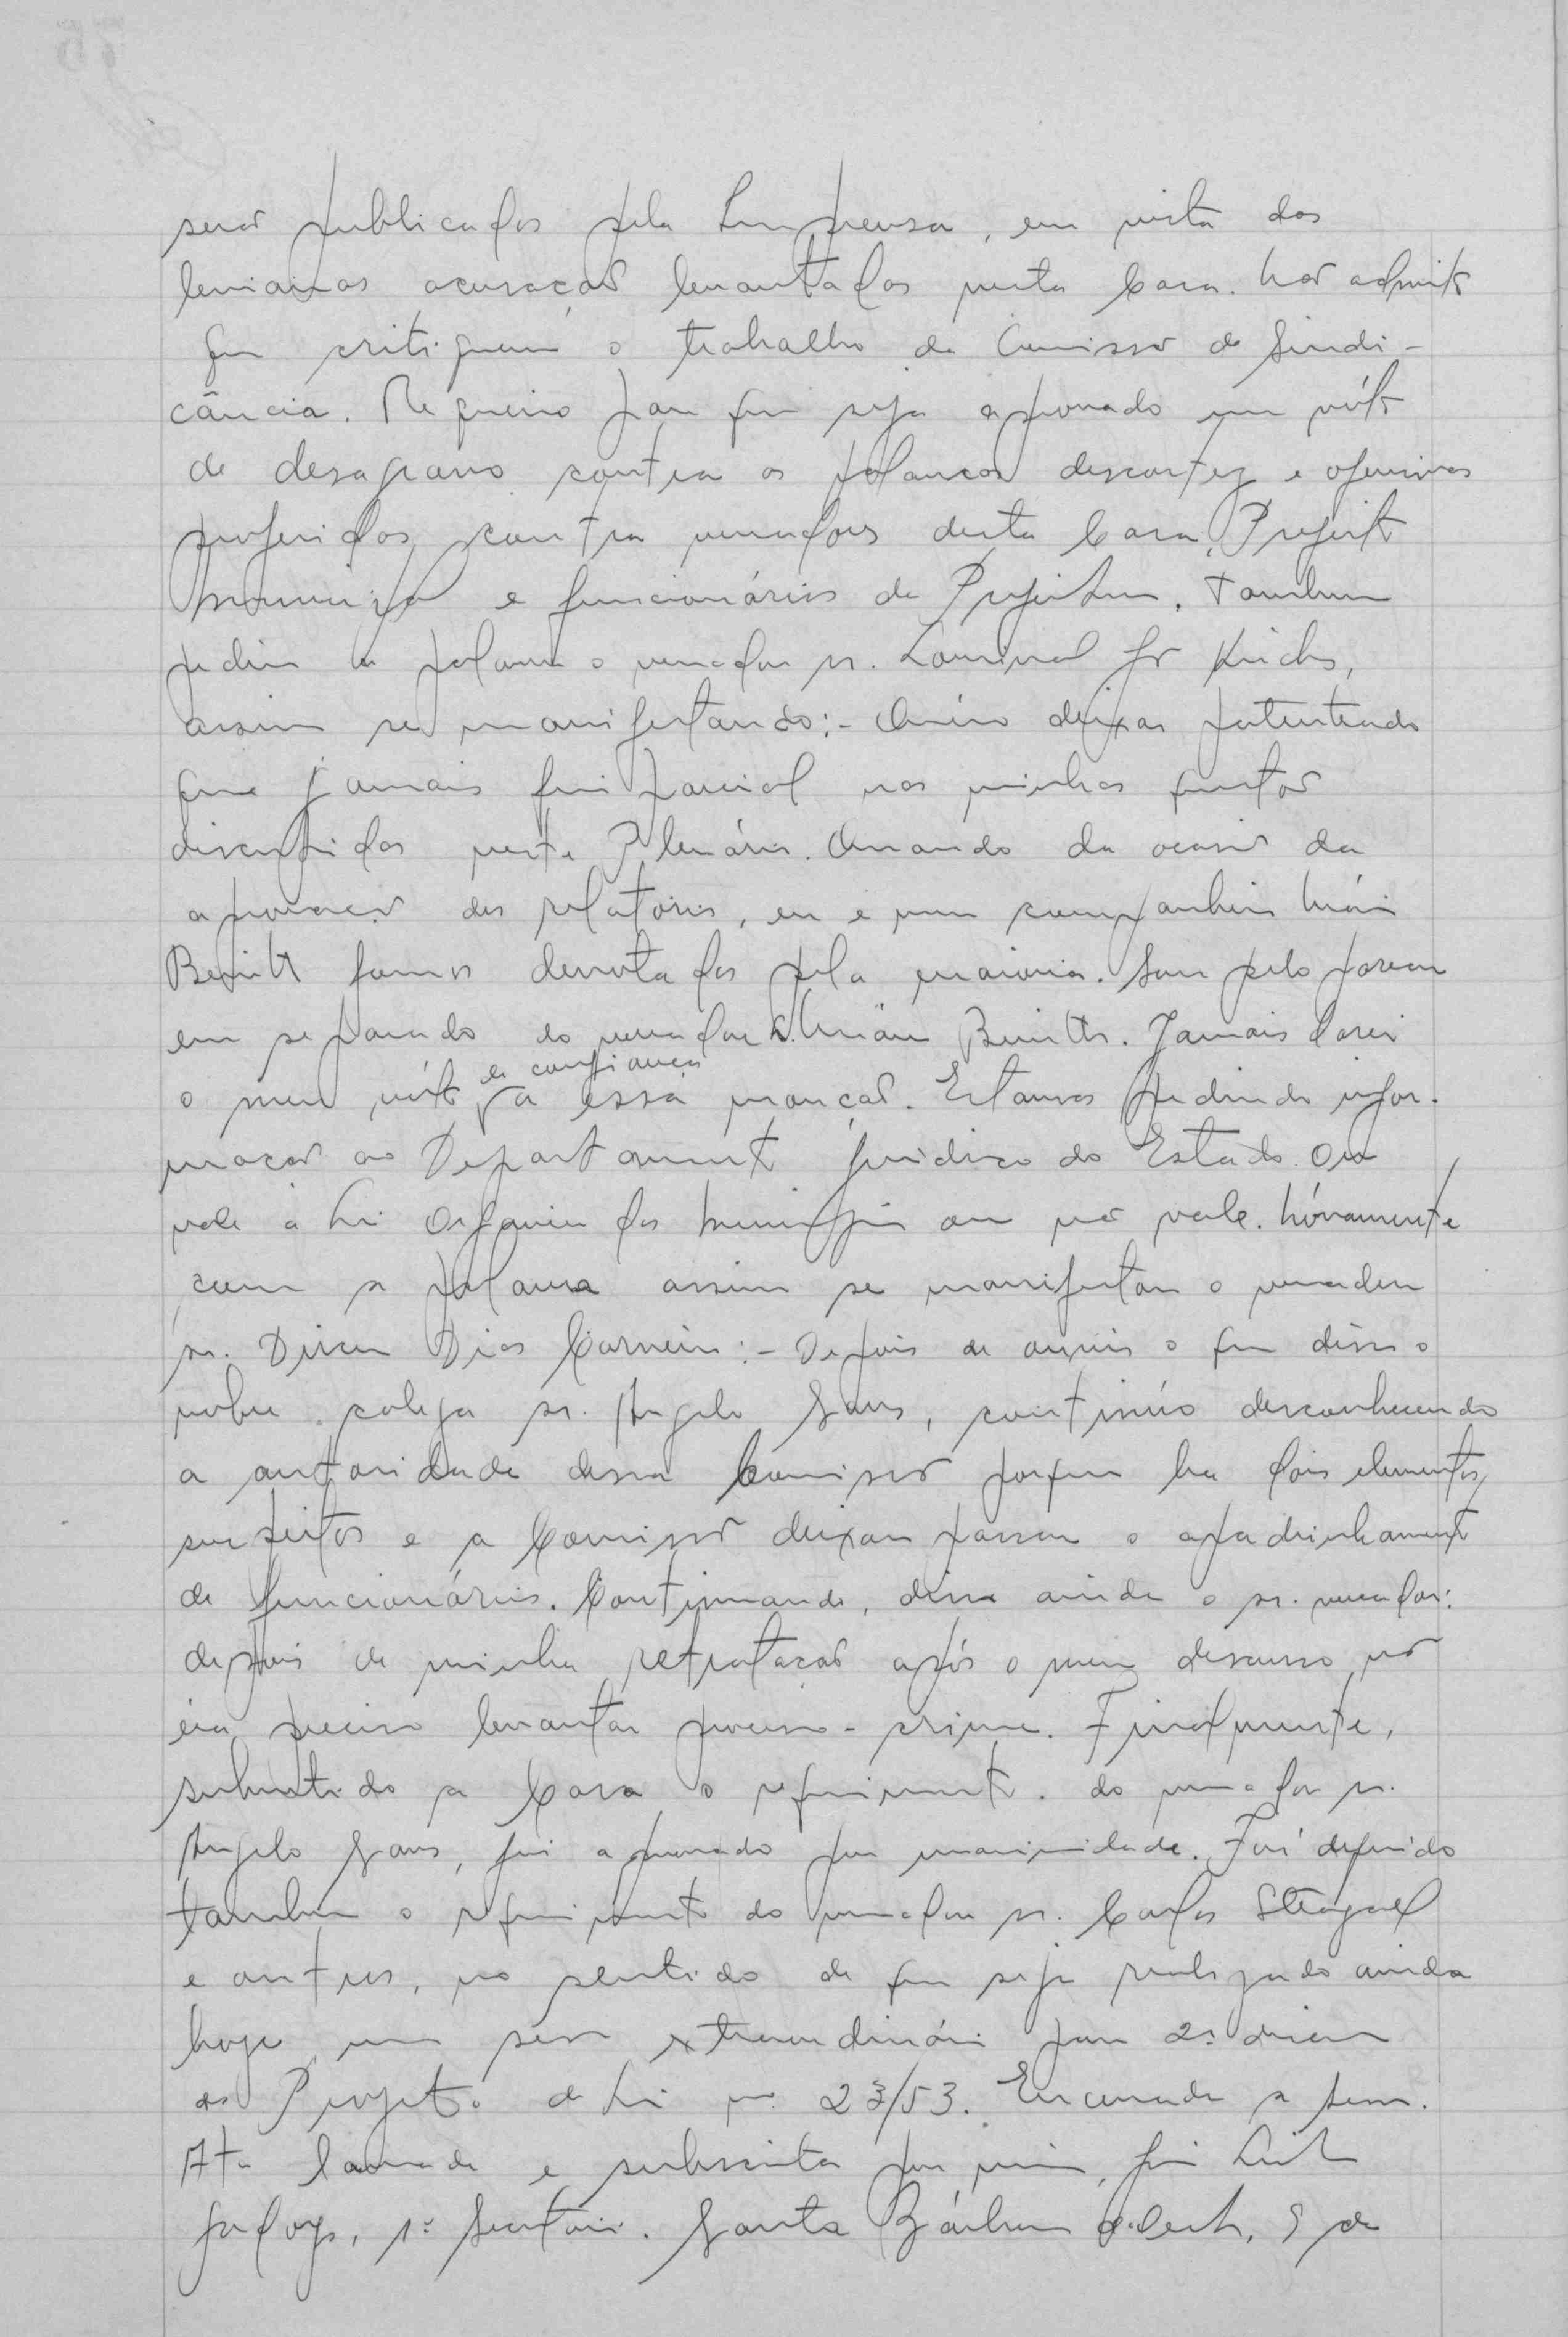 serão publicados pela Imprensa, em vista das
levianas acusações levantadas nesta Casa. Não admito
que critiquem o trabalho da Comissão de Sindi-
cância. Requeiro para que seja aprovado um vóto
de desagravo contra as palavras descortez e ofensivas
proferidas contra vereadores desta Casa, Prefeito
Municipal e funcionários da Prefeitura. Tambem
pediu a palavra o vereador sr. Lourival
assim se manifestando:- Quéro deixar patenteado
que jamais fui parcial nas minhas
discutidas neste Plenário. Quando da ocasião da
aprovação dos relatórios, eu e meu companheiro Mário
Benitt fomos derrotados pela maioria. Sou pelo parecer
em separado do vereador sr. Mário Benitts. Jamais darei
o meu vóto de confiança a essa moção. Estamos pedindo infor-
mação ao Departamento Juridico do Estado. Ou
vale a Lei Organica dos Municipios ou não vale. Nóvamente
com a palavra assim se manifestou o vereador
sr. Dirceu Dias Carneiro:- Depois de ouvir o que disse o
nobre colega sr. Angelo Sans, continúo desconhecendo
a autoridade dessa Comissão porque ha dois elementos
suspeitos e a Comissão deixou passar o apadrinhamento
de funcionários. Continuando, disse ainda o sr. vereador:
depois de minha retratação após o meu discurso não
éra preciso levantar processo-crime. Finalmente,
submetido a Casa o requerimento do vereador sr.
Angelo Sans, foi aprovado por unanimidade. Foi deferido
tambem o requerimento do vereador sr. Carlos Steagall
e outros, no sentido de que seja realizado ainda
hoje uma sessão extraordinária para 2ª discussão
do Projeto de Lei nº 23/53. Encerrada a sessão.
Ata lavrada e subscrita por mim, José Leite
Godoy, 1º Secretário. Santa Bárbara d'Oeste, 9 de